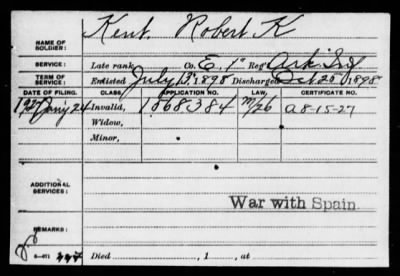 NAME OF SOLDIER: Kent, Robert K
SERVICE: Late rank Co. E, 1" Reg't Ark. Inf
TERM OF SERVICE: Enlisted July 13" 1898 Discharged Oct 25 1898
DATE OF FILING. CLASS. APPLICATION NO. LAW. CERTIFICATE NO.
1927 Jany 24 Invalid, 1568384 M/26 A8-15-27
Widow,
Minor,
ADDITIONAL SERVICES:
War with Spain.
REMARKS:
6—071
Died , 1 , at